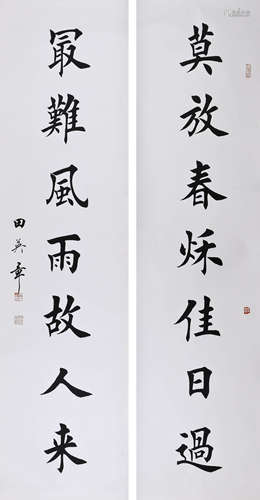 莫放春秌佳日過
冣難風雨故人来
田英章